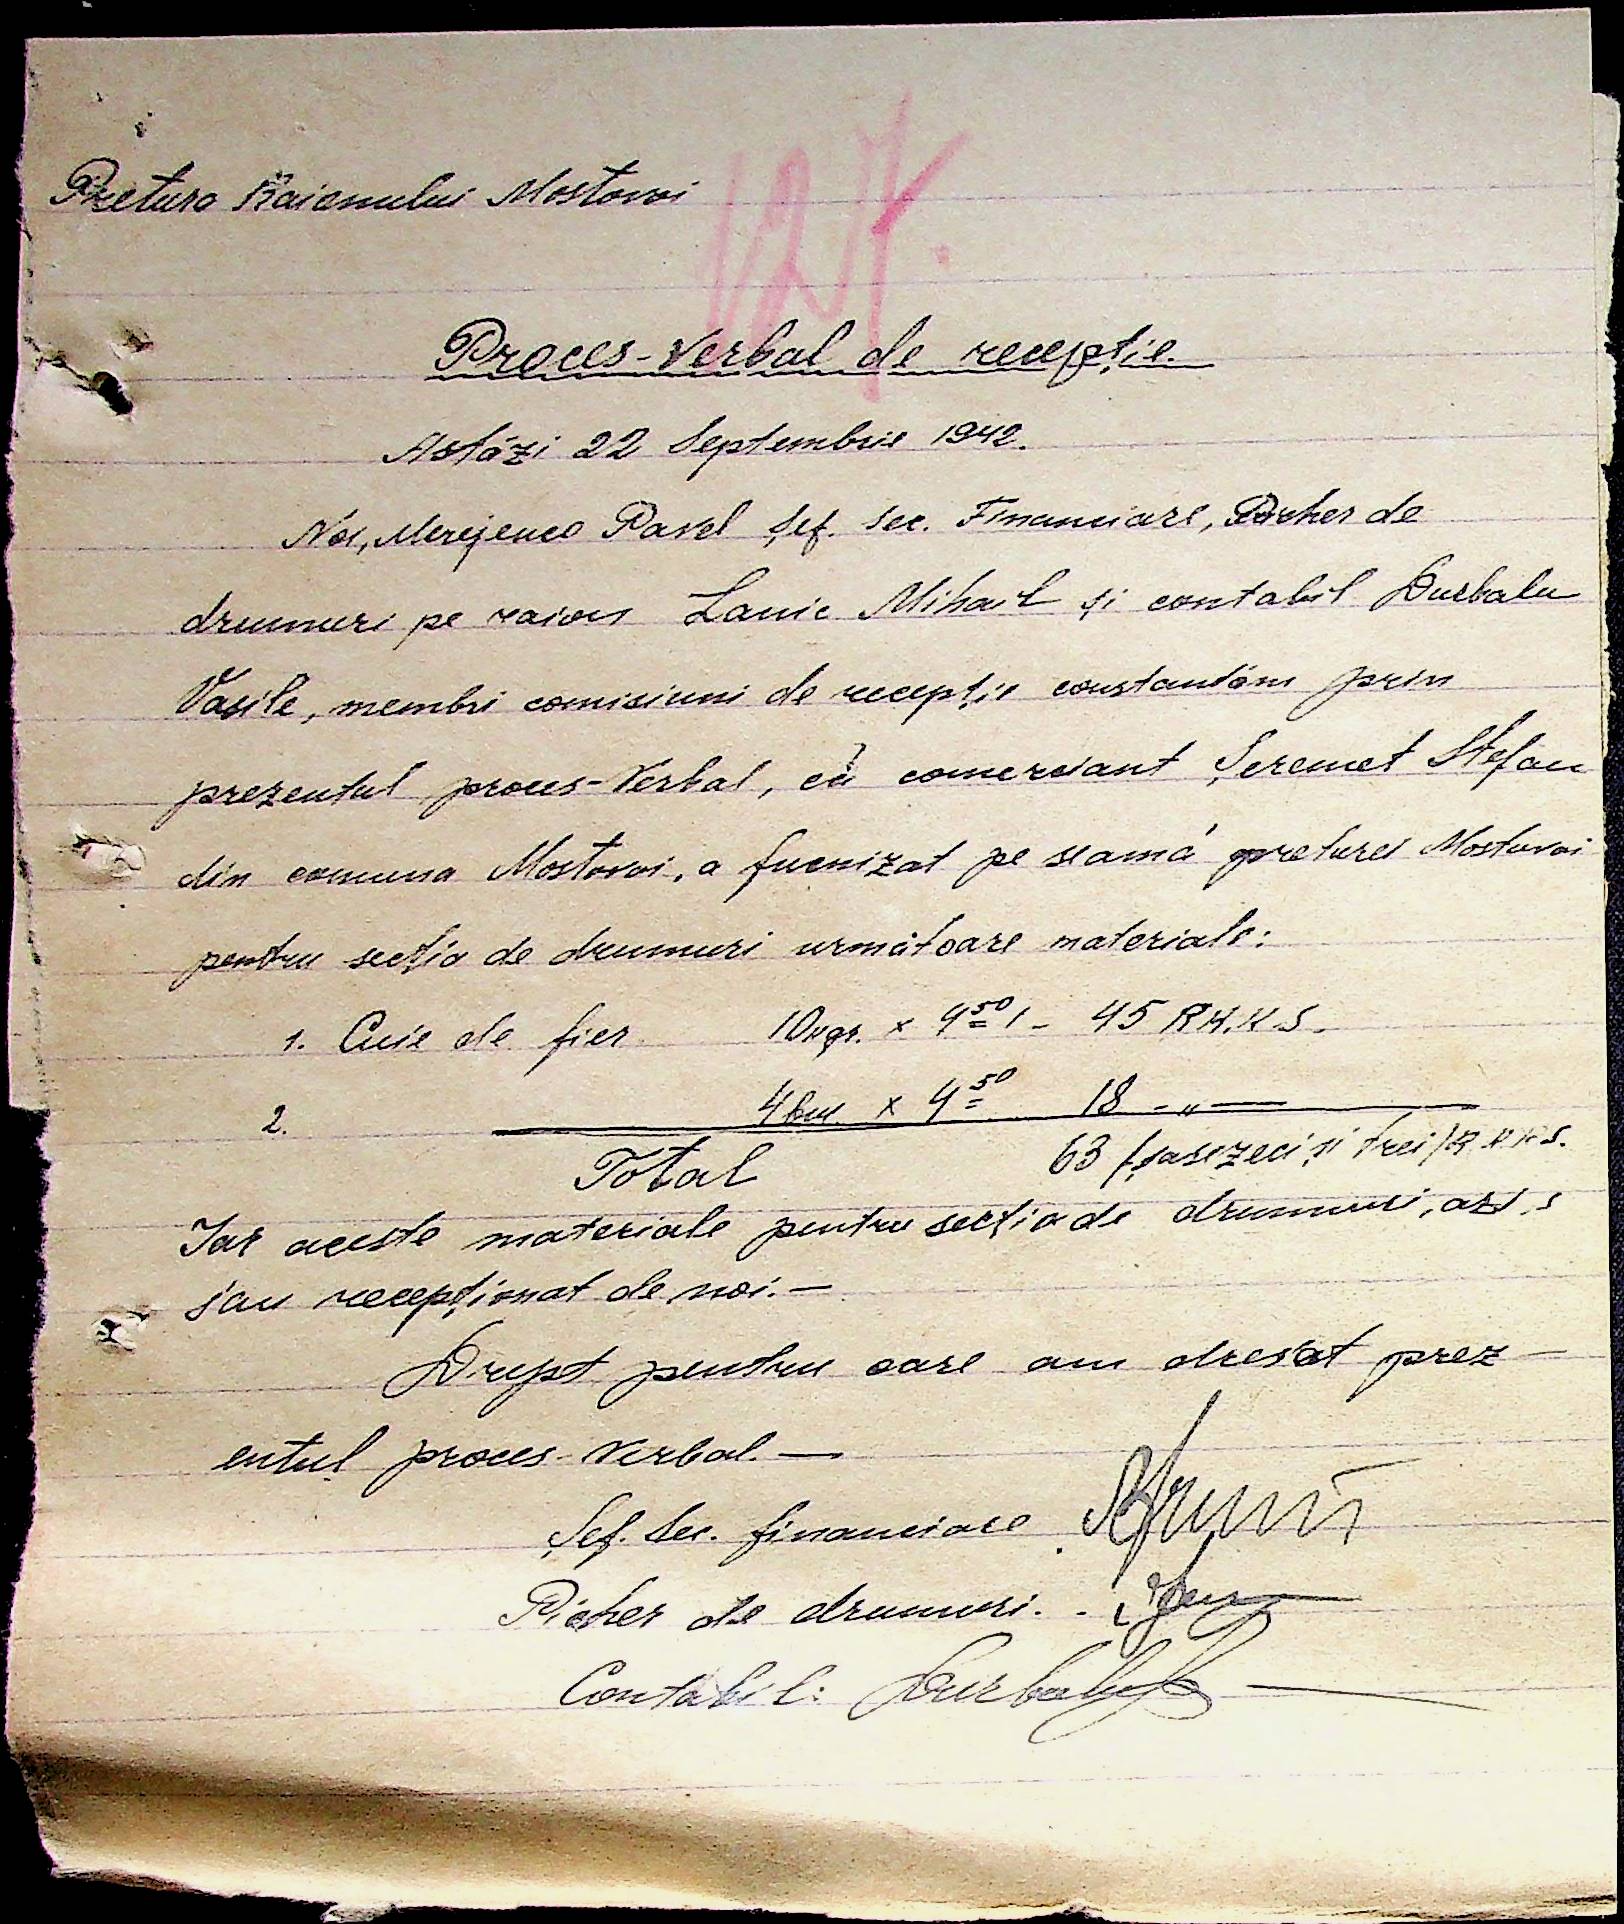 Pretura Raionului Mostovoi
127.
Proces-Verbal de recepţie.
Astăzi 22 Septembrie 1942.
Noi, Merejenco Pavel Şef. sec. Financiare, Picher de
drumuri pe raion Lanic Mihail şi contabil Durbalu
Vasile, membri comisiuni de recepţie constantăm prin
prezentul proces-Verbal, că comerciant Şeremet Stefan
din comuna Mostovoi, a furnizat pe seamă preturei Mostovoi
pentru secţia de drumuri următoare materiale:
1. Cuie de fier 10 kgr. x 4 50 1 - 45 R.K.K.S.
2. 4 buc. x 4 50 18 - „ —
Total 63 /şasezeci şi trei/ R.K.K.S.
Iar aceste materiale pentru secţia de drumuri, azi, s
s'au recepţionat de noi. —
Drept pentru care am dresat prez-
entul proces-Verbal. —
Şef. Sec. financiare
Picher de drumuri. -
Contabil: Durbalu